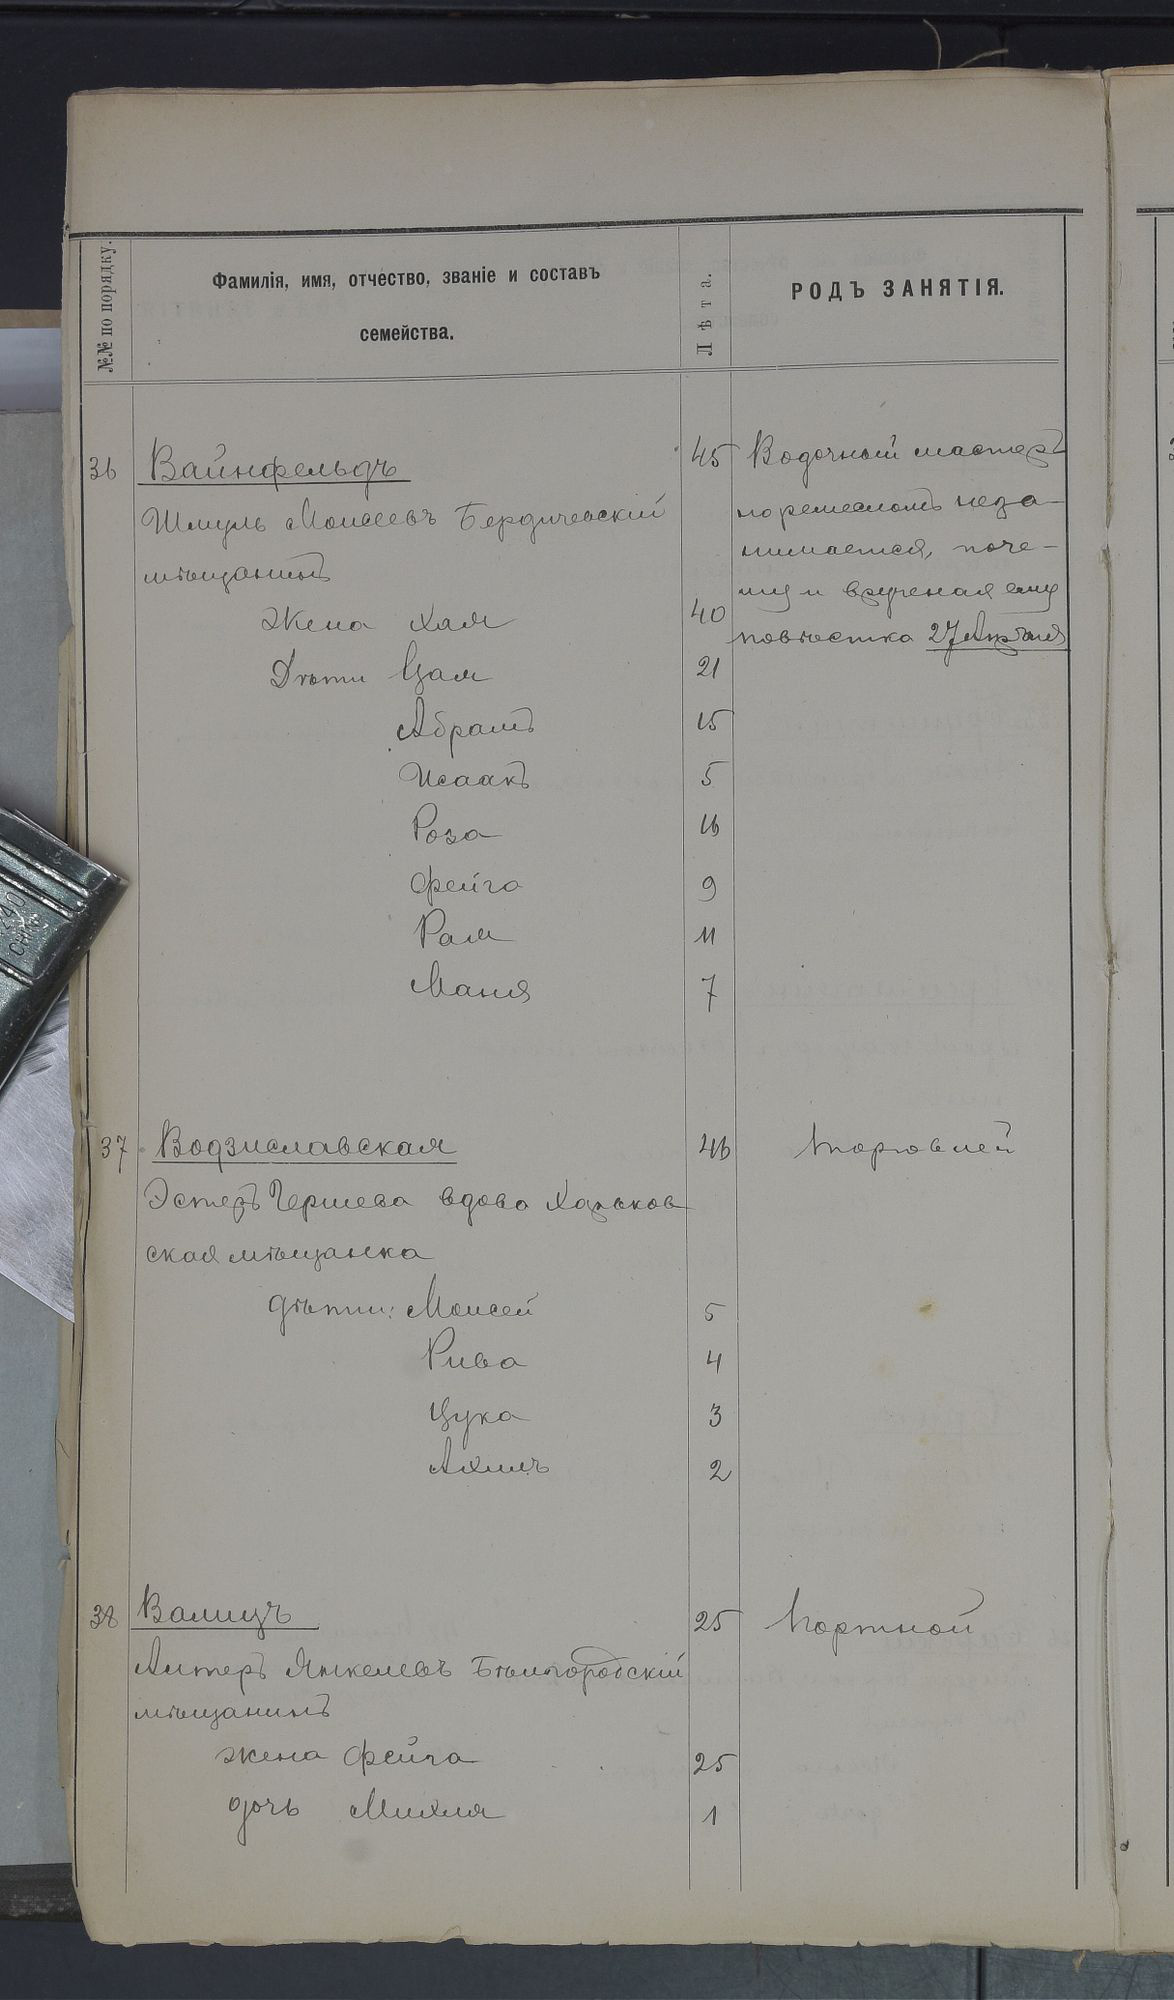 №№ по порядку.
Фамилія, имя, отчество, званіе и составъ
семейства.
Лѣта.
РОДЪ ЗАНЯТІЯ.
36 Вайнфельдъ 45 Водочный мастеръ
Шмуль Моисеевъ Бердичевскій но ремесломъ неза-
мѣщанинъ нимается, поче-
му и вручена ему
Жена Хая 40
повѣстка 27 Апрѣля
Дѣти Цая 21
Абрамъ 15
Исаакъ 5
Роза 16
Фейга 9
Рая 11
Маня 7
37 Водзиславская 46 Торговлей
Эстеръ Гершева вдова Харьков
ская мѣщанка
дѣти: Моисей 5
Рива 4
Цука 3
Ахилъ 2
38 Валицъ 25 Портной
Алтеръ Янкелевъ Бѣлгородскій
мѣщанинъ
жена Фейга 25
дочь Михля 1